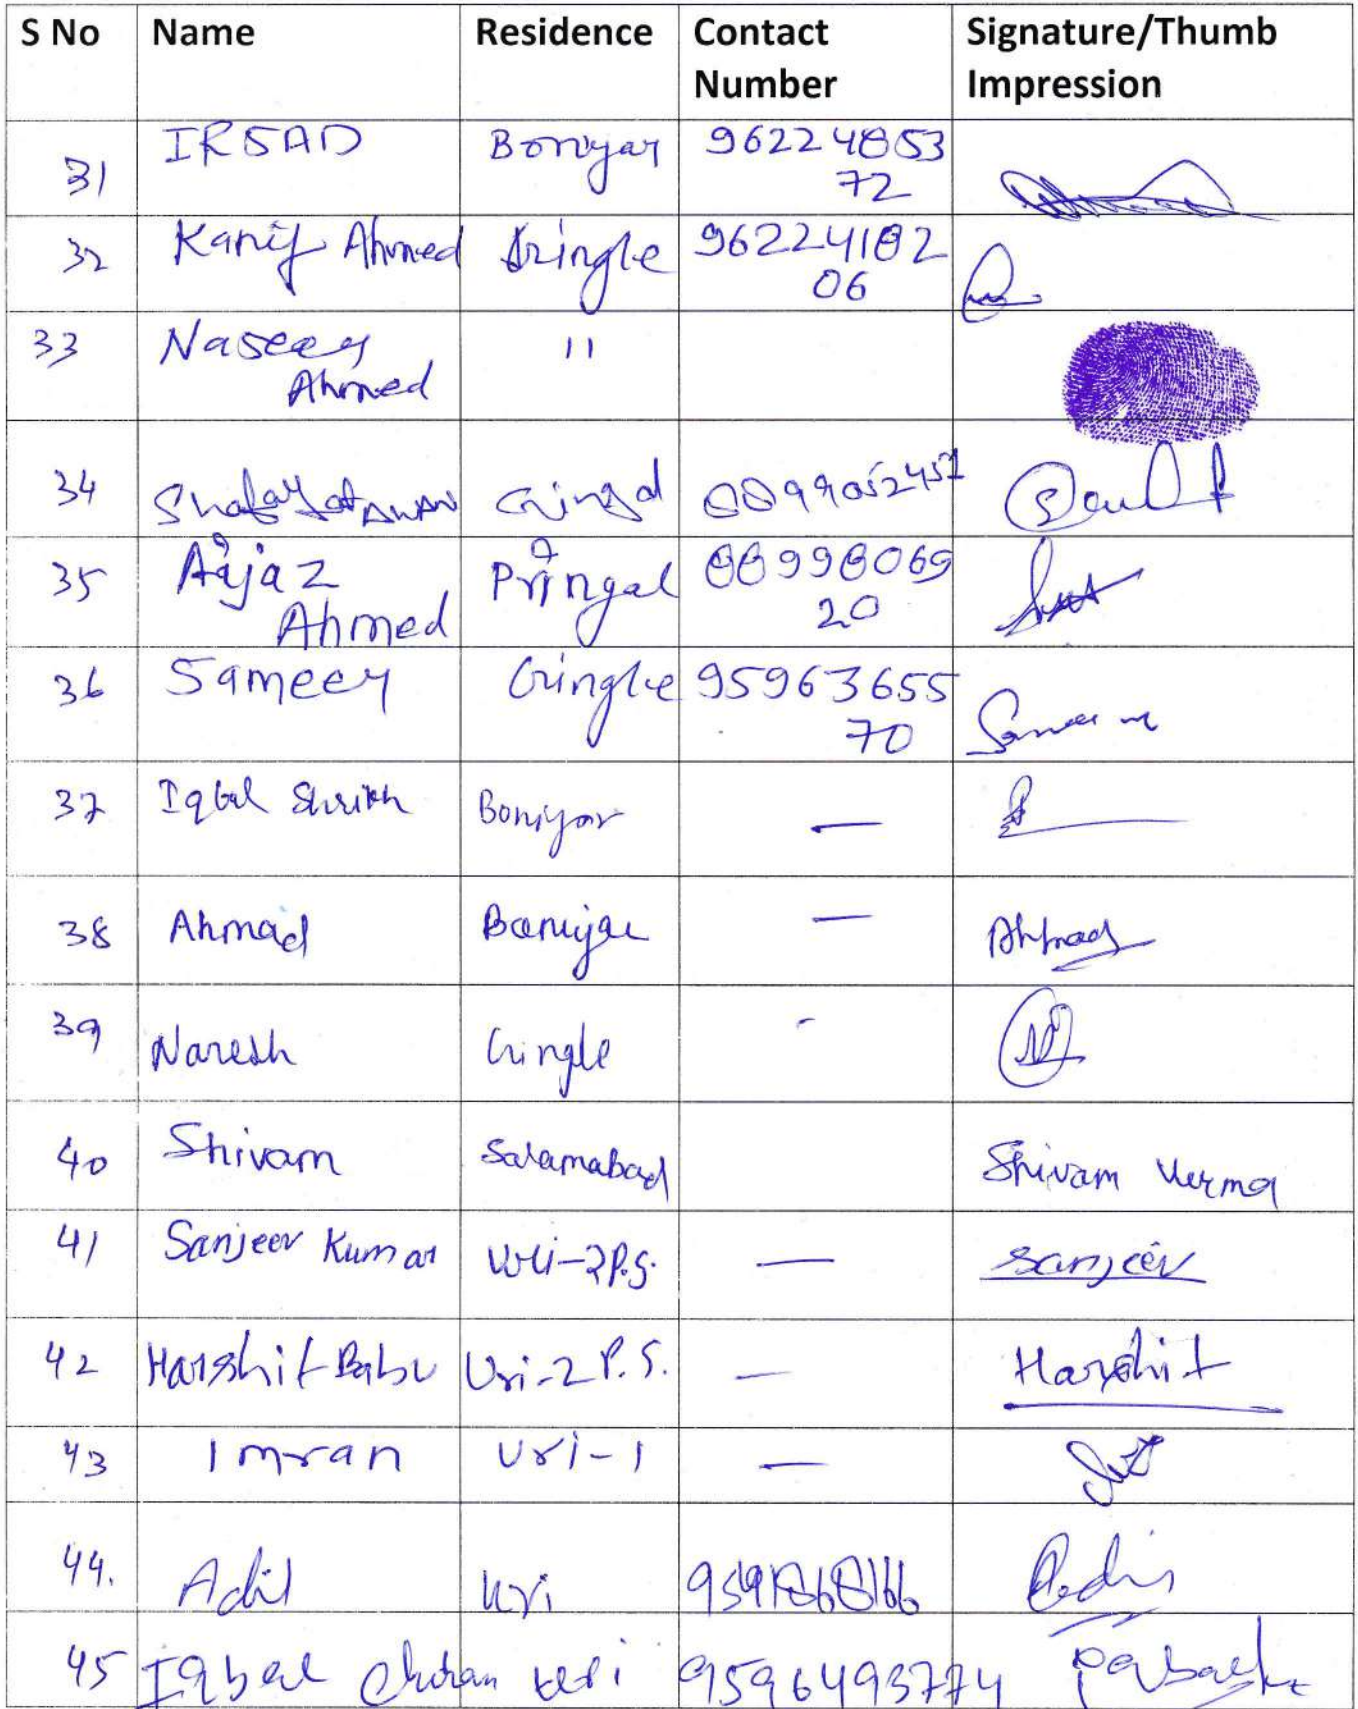 S No Name Residence Contact Number Signature/Thumb Impression
31 IRSAD Boniyar 9622485372
32 Kanif Ahmed Gringle 9622418206
33 Naseer Ahmed "
34 Gingal
35 Aijaz Ahmed Pringal 8899806920
36 Sameer Gringle 9596365570
37 Iqbal Boniyar —
38 Ahmad Boniyar — Ahmad
39 Naresh Gringle -
40 Shivam Salamabad Shivam Verma
41 Sanjeev Kumar Uri-2 P.S. — Sanjeev
42 Harshit Babu Uri-2 P.S. — Harshit
43 Imran Uri-1 —
44. Adil Uri
45 Iqbal Uri 9596493774